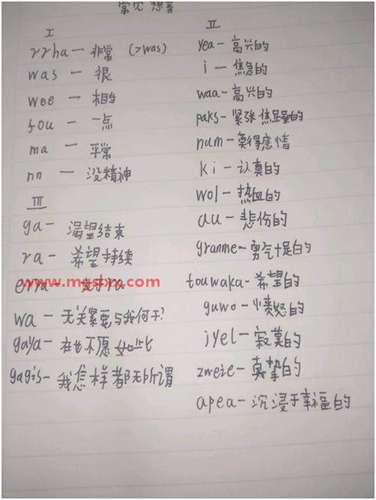 常见想音
I
rrha — 非常 (>was)
was — 很
wee — 相当
fou — 一点
ma — 平常
nn — 没精神
III
ga — 渴望结束
ra — 希望持续
erra —
www.mgsbxa.com
wa — 无关紧要与我何干?
gaya — 在也不愿如此
gagis — 我怎样都无所谓
II
yea — 高兴的
i — 焦急的
waa — 高兴的
paks — 紧张焦虑的
num — 莫得感情
ki — 认真的
wol — 热血的
au — 悲伤的
granme — 勇气十足的
touwaka — 希望的
guwo — 愤怒的
jyel — 寂寞的
zweie — 真挚的
apea — 沉浸于幸福的